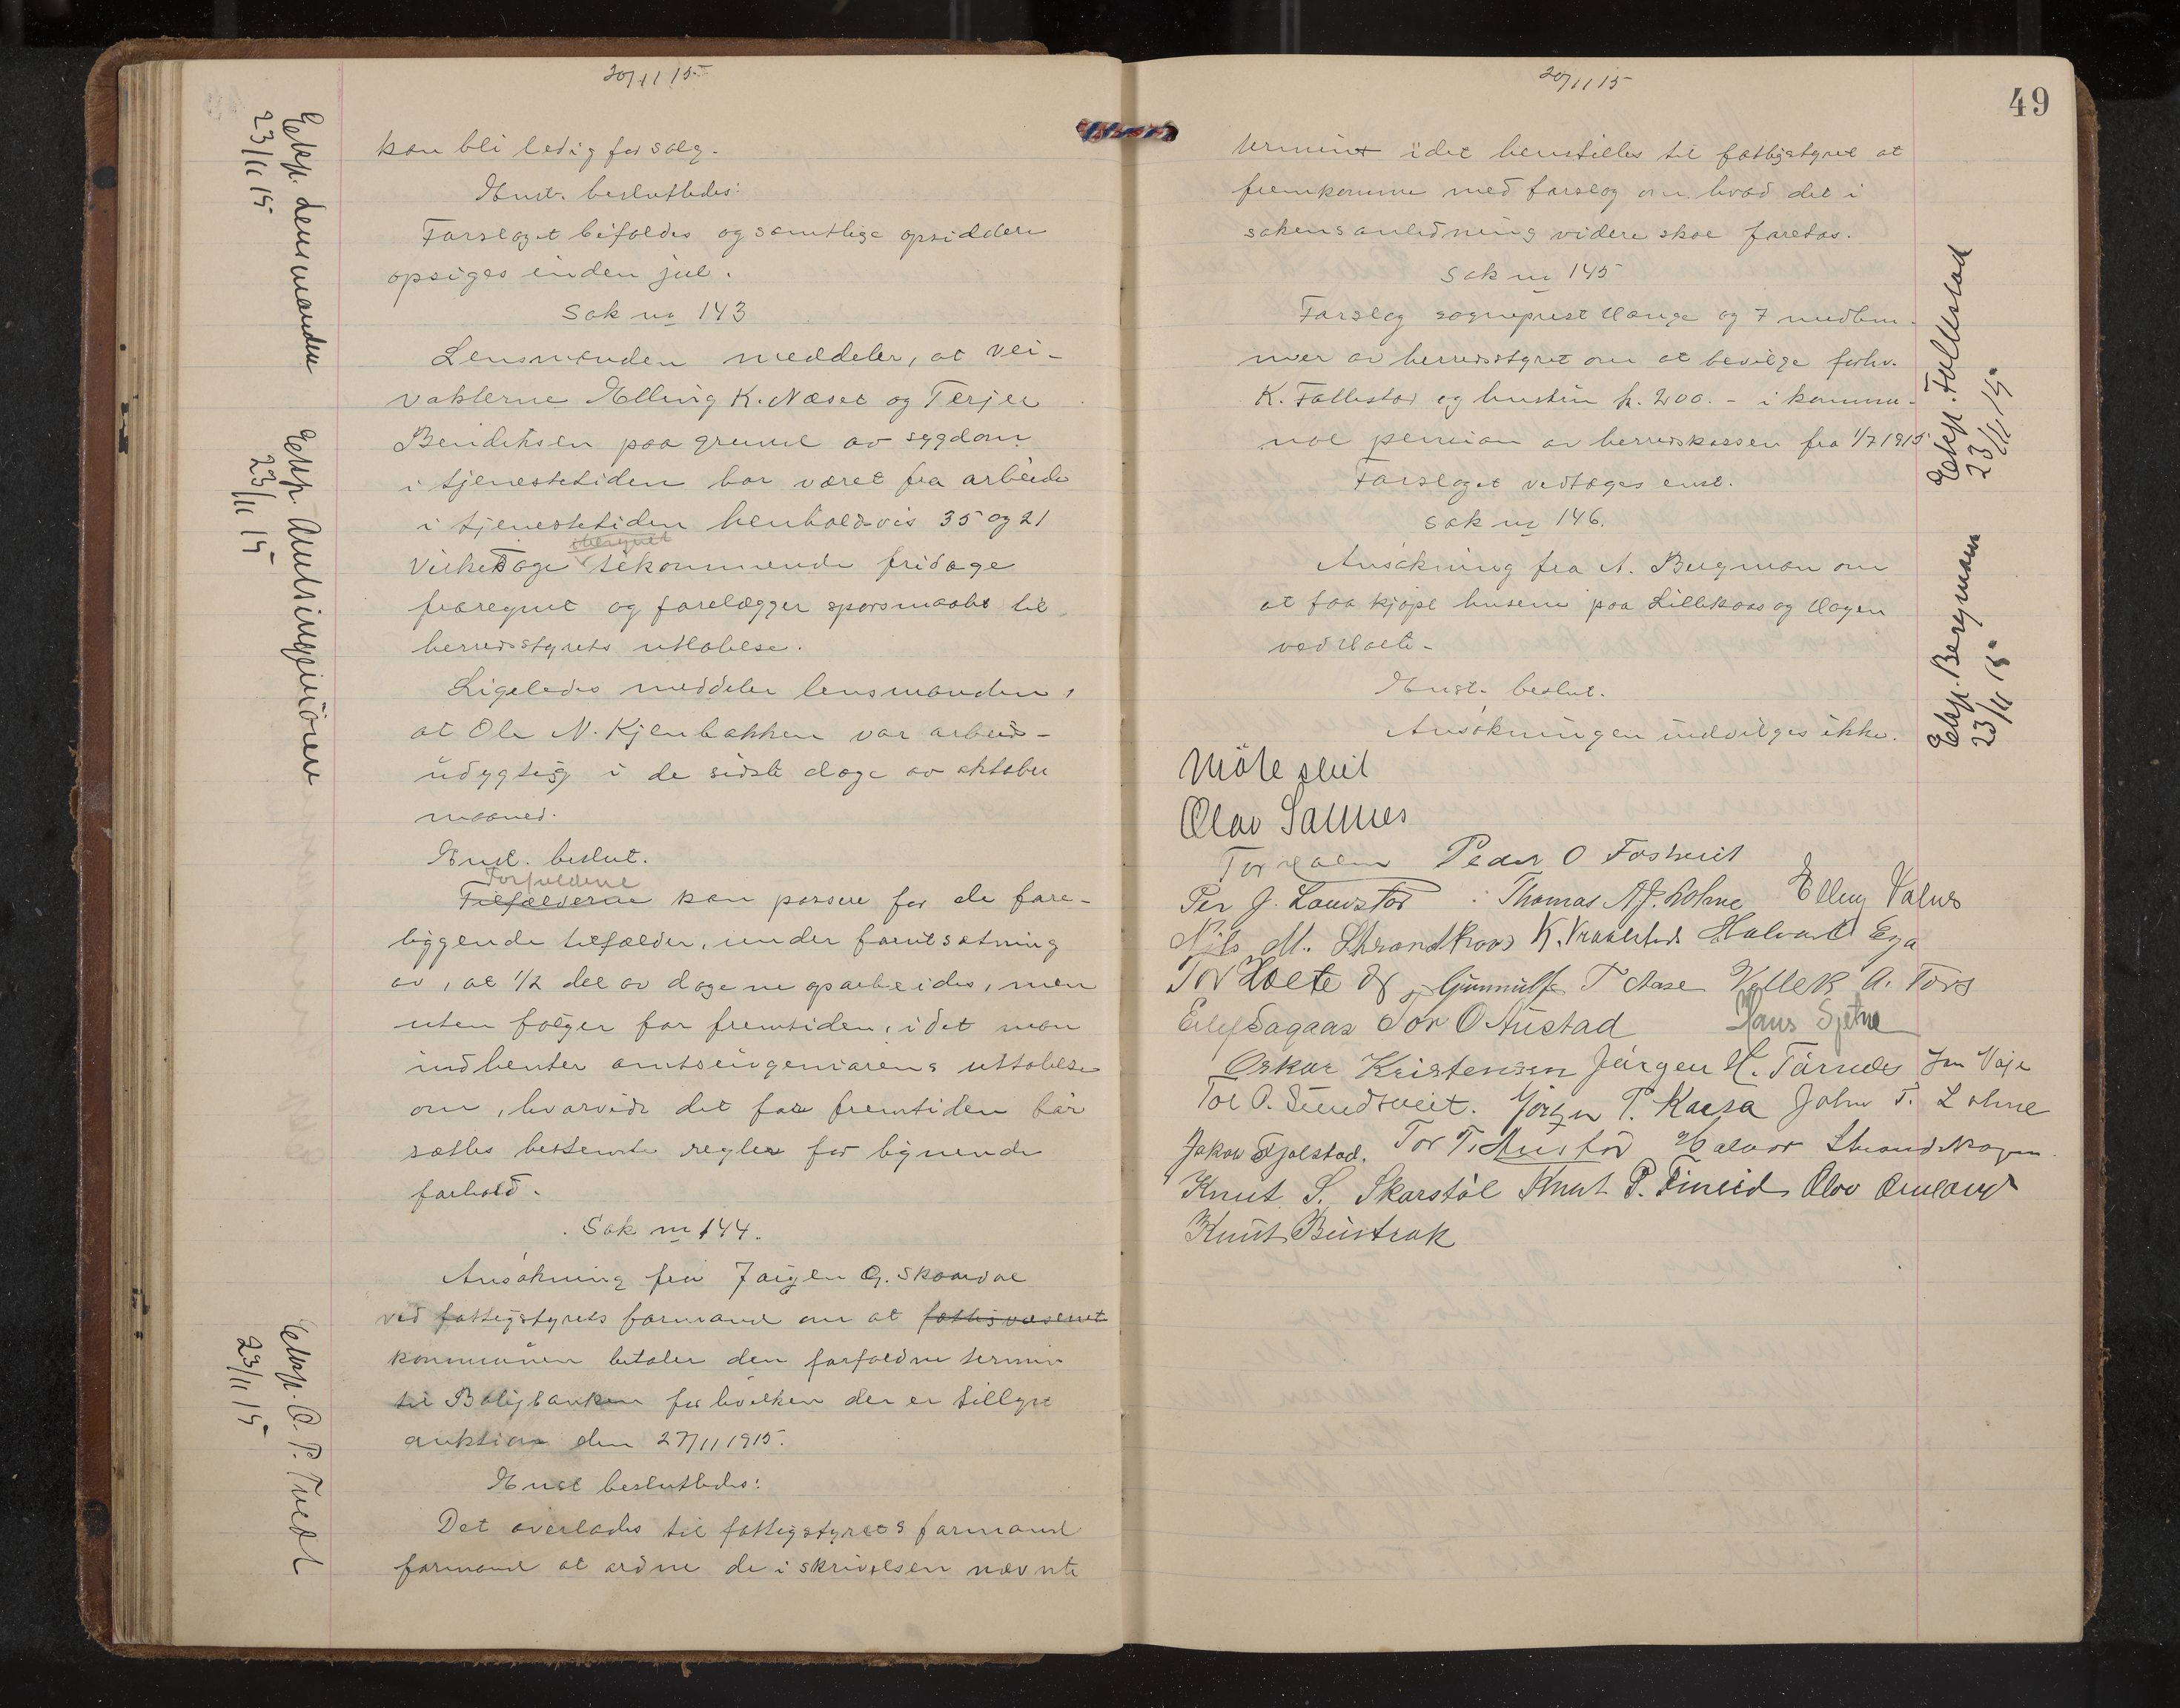 20/11 15
kan bli ledig for salg.
Enst. besluttedes:
Forslaget bifaldes og samtlige opsiddere
opsiges inden jul.
Sak no 143
Lensmanden meddeler, at vei-
vakterne Elling K. Næset og Terjer
Bendiksen paa grund av sygdom
i tjenestetiden har været fra arbeide
i tjenestetiden henholdsvis 35 og 21
iberegnet
virkedage tilkommende fridage
fraregnet og forelægger spørsmaalet til
herredsstyrets uttalelse.
Ligeledes meddeler lensmanden,
at Ole N. Kjenbakken var arbeids-
udygtig i de sidste dage av oktober
maaned.
Enst. beslut.
Forfaldene
Tilfælderne kan passere for de fore-
liggende tilfælder, under forutsætning
av, at 1/2 del av dagene oparbeides, men
uten følger for fremtiden, idet man
indhenter amtsingeniørens uttalelse
om, hvorvidt det for fremtiden bør
sættes bestemte regler for lignende
forhold.
Sak no 144.
Ansøkning fra Jørgen G. Skaardal
ved fattigstyrets formand om at fattigvæsenet
kommunen betaler den forfaldne termin
til Boligbanken for hvilken der er tillyst
auktion den 27/11 1915.
Enst besluttedes:
Det overlades til fattigstyrets formand
formand at ordne de i skrivelsen nævnte
Eksp. Lensmanden
23/11 15
Eksp Amtsingeniören
23/11 15
Eksp. O. P. Tvedt
23/11 15
20/11 15
49
termint idet henstilles til fattigstyret at
fremkomme med forslag om hvad det i
sakens anledning videre skal foretas.
Sak no 145
Forslag sogneprest Hauge og 7 medlem-
mer av herredsstyret om at bevilge forhv.
K. Fallestad og hustru kr. 200.- i kommu-
nal pension av herredskassen fra 1/7 1915
Forslaget vedtages enst.
Sak no 146.
Ansøkning fra A. Bergman om
at faa kjøpe husene paa Lillekaas og Hagen
ved Holte.
Enst. beslut.
Ansøkningen indvilges ikke.
Möte slut
Olav Sannes
Tor Holm Peder O Fosserit
Per J. Landstad Thomas Aj. Lohne Elling Valnes
Nils M. Strandskoos K. Vraalstad Halvard Ega
Tor Holte Gunnulf T Aase Kittel A. Tors
Eilef Sagaas Tor O Austad Hans Sjetne
Oskar Kristensen Jørgen H. Tärnes Jn Vaje
Tor O. Sundsveit. Jörgen T. Kaasa John T. Lohne
Jakob Fjalstad. Tor T. Austad Halvor Strandskogen
Knut S. Skarstøl Knut P. Fineid Olav Omland
Knut Bustrak
Eksp. Fallestad
23/11 15
Eksp. Bergmann
23/11 15